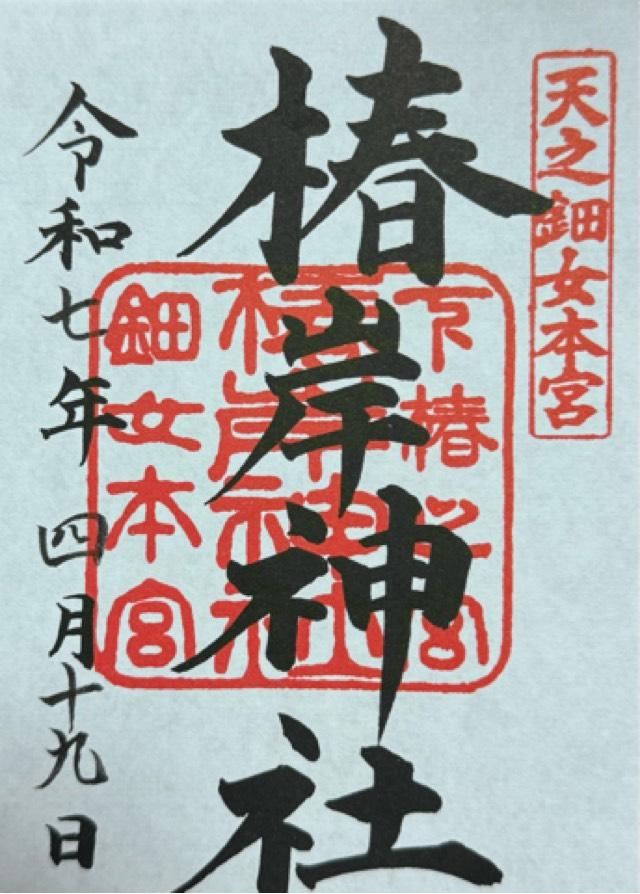 天之鈿女本宮
椿岸神社
下椿
椿岸神社
鈿女本宮
令和七年四月十九日